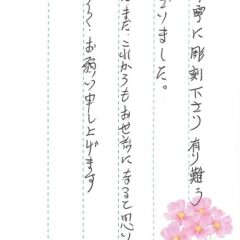 寧に彫刻下さり有り難う
いました。
また、これからもお世話になると思い
しくお願い申し上げます